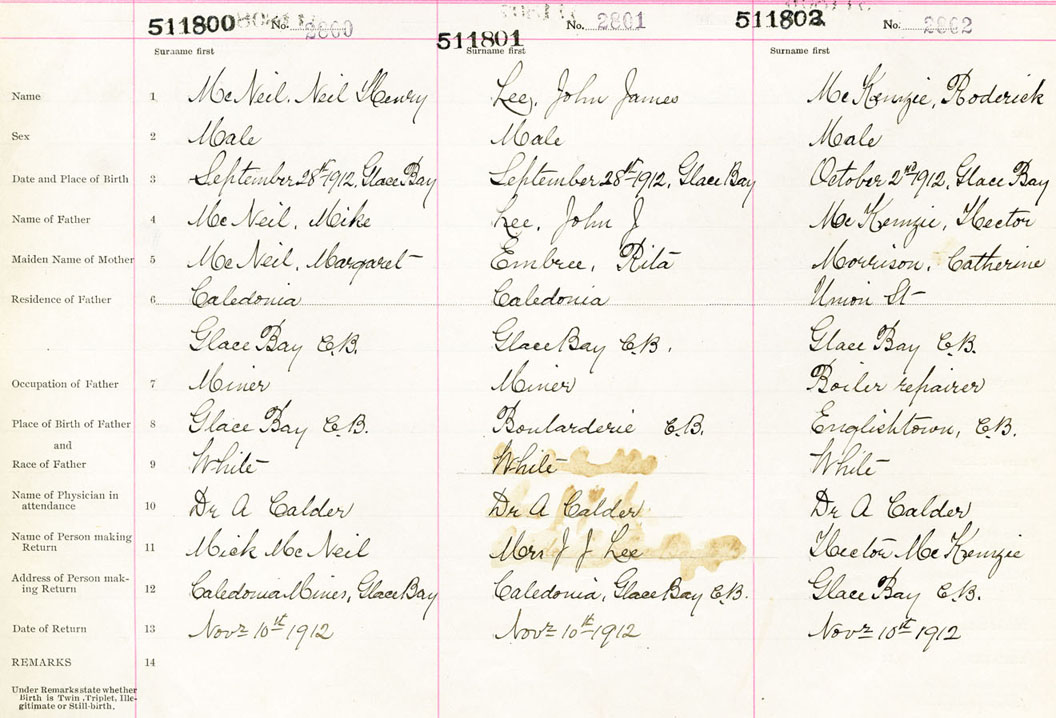 511800 No. 2800 511801 No. 2801 511802 No. 2802
Surname first Surname first Surname first
Name 1 McNeil, Neil Henry Lee, John James McKenzie, Roderick
Sex 2 Male Male Male
Date and Place of Birth 3 September 28th 1912, Glace Bay September 28th 1912, Glace Bay October 2nd 1912, Glace Bay
Name of Father 4 McNeil, Mike Lee, John J McKenzie, Hector
Maiden Name of Mother 5 McNeil, Margaret Embree, Rita Morrison, Catherine
Residence of Father 6 Caledonia Caledonia Union St
Glace Bay C.B. Glace Bay C.B. Glace Bay C.B.
Occupation of Father 7 Miner Miner Boiler repairer
Place of Birth of Father 8 Glace Bay C.B. Boularderie C.B. Englishtown, C.B.
and
Race of Father 9 White White White
Name of Physician in
attendance 10 Dr A Calder Dr A Calder Dr A Calder
Name of Person making
Return 11 Mick McNeil Mrs J J Lee Hector McKenzie
Address of Person mak-
ing Return 12 Caledonia Mines, Glace Bay Caledonia, Glace Bay C.B. Glace Bay C.B.
Date of Return 13 Novr 10th 1912 Novr 10th 1912 Novr 10th 1912
REMARKS 14
Under Remarks state whether
Birth is Twin, Triplet, Ille-
gitimate or Still-birth.